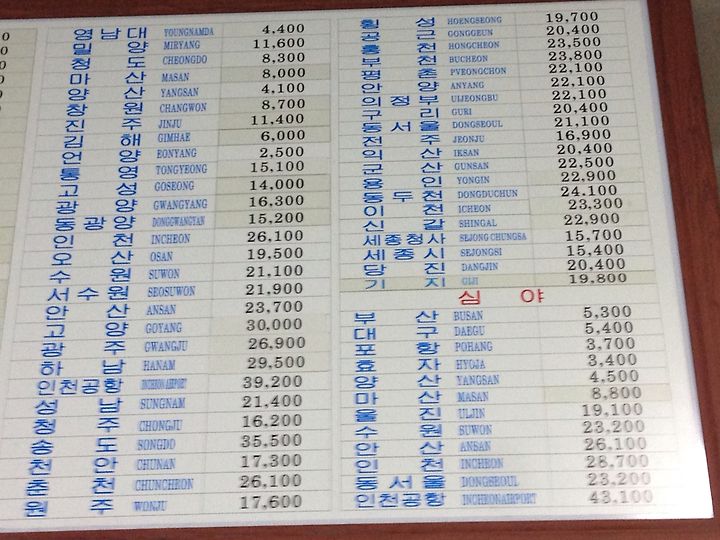 영남대 YOUNGNAMDA 4,400
밀양 MIRYANG 11,600
청도 CHEONGDO 8,300
마산 MASAN 8,000
양산 YANGSAN 4,100
창원 CHANGWON 8,700
진주 JINJU 11,400
김해 GIMHAE 6,000
언양 EONYANG 2,500
통영 TONGYEONG 15,100
고성 GOSEONG 14,000
광양 GWANGYANG 16,300
동광양 DONGGWANGYAN 15,200
인천 INCHEON 26,100
오산 OSAN 19,500
수원 SUWON 21,100
서수원 SEOSUWON 21,900
안산 ANSAN 23,700
고양 GOYANG 30,000
광주 GWANGJU 26,900
하남 HANAM 29,500
인천공항 INCHEONAIRPORT 39,200
성남 SUNGNAM 21,400
청주 CHONGJU 16,200
송도 SONGDO 35,500
천안 CHUNAN 17,300
춘천 CHUNCHEON 26,100
원주 WONJU 17,600
횡성 HOENGSEONG 19,700
공근 GONGGEUN 20,400
홍천 HONGCHEON 23,500
부천 BUCHEON 23,800
평촌 PVEONGCHON 22,100
안양 ANYANG 22,100
의정부 UIJEONGBU 22,100
구리 GURI 20,400
동서울 DONGSEOUL 21,100
전주 JEONJU 16,900
익산 IKSAN 20,400
군산 GUNSAN 22,500
용인 YONGIN 22,900
동두천 DONGDUCHUN 24,100
이천 ICHEON 23,300
신갈 SHINGAL 22,900
세종청사 SEJONG CHUNGSA 15,700
세종시 SEJONGSI 15,400
당진 DANGJIN 20,400
기지 GIJI 19,800
심야
부산 BUSAN 5,300
대구 DAEGU 5,400
포항 POHANG 3,700
효자 HYOJA 3,400
양산 YANGSAN 4,500
마산 MASAN 8,800
울진 ULJIN 19,100
수원 SUWON 23,200
안산 ANSAN 26,100
인천 INCHEON 28,700
동서울 DONGSEOUL 23,200
인천공항 INCHEONAIRPORT 43,100